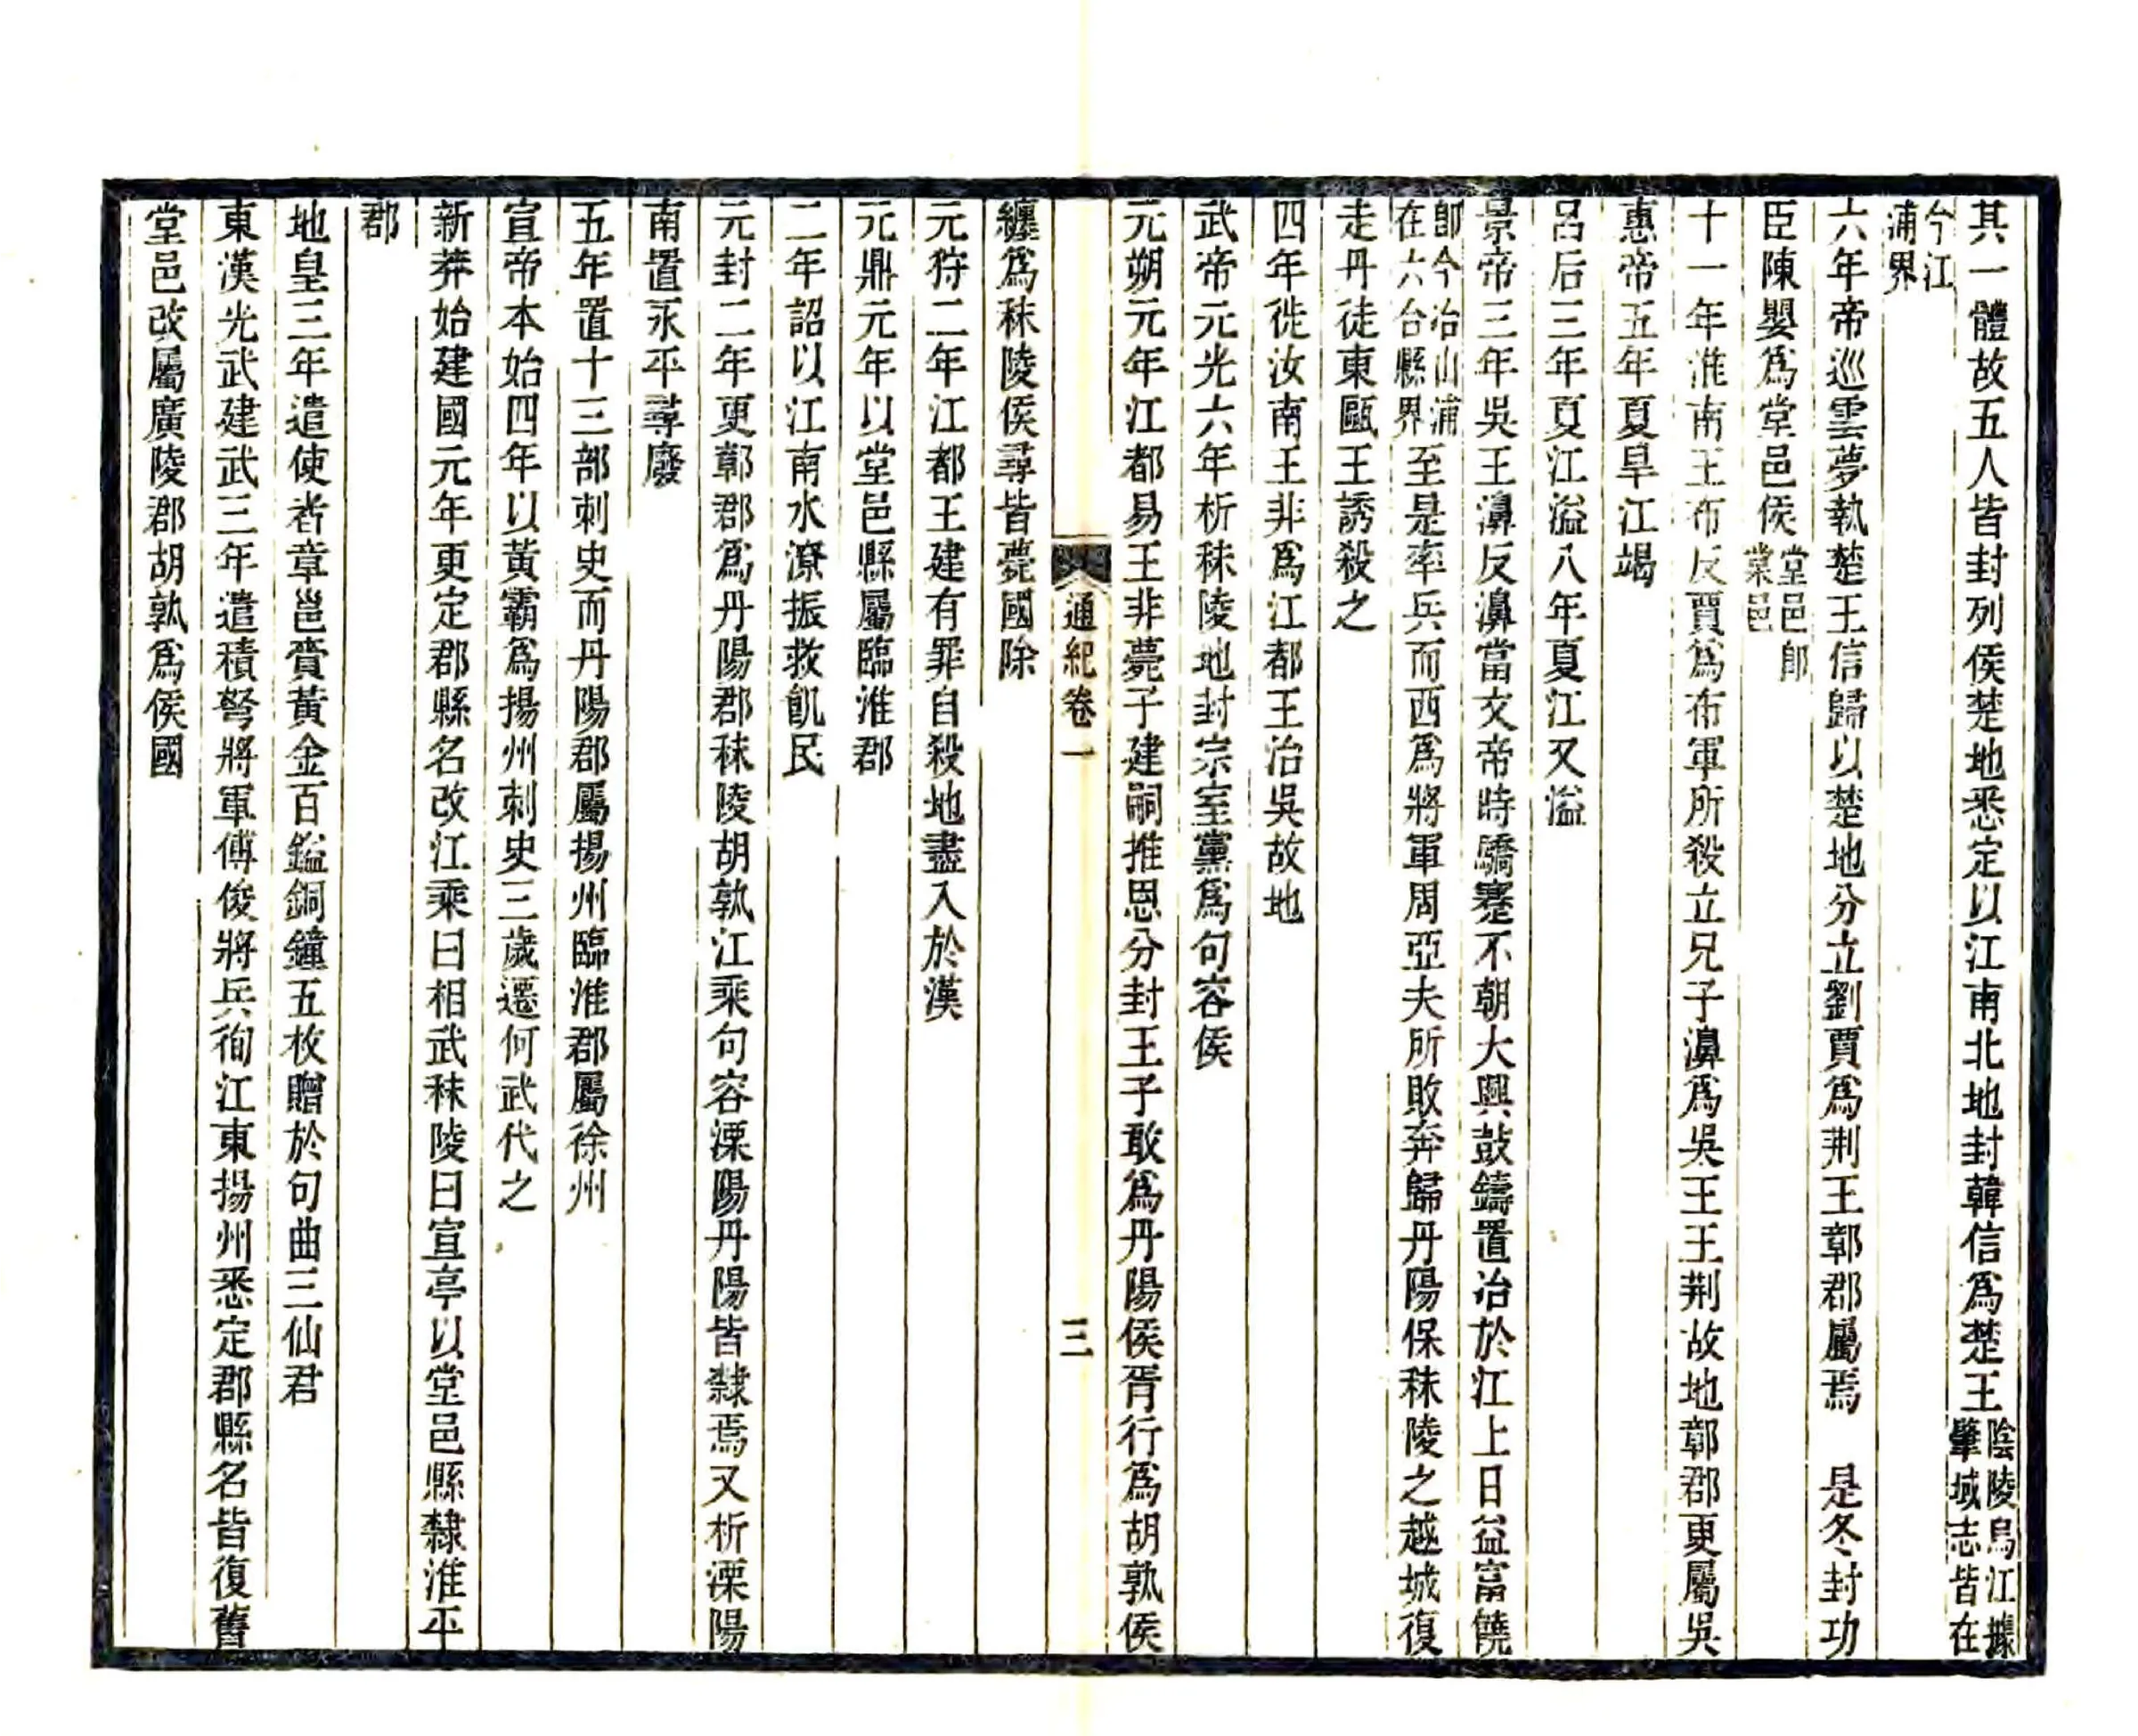 其一體故五人皆封列侯楚地悉定以江南北地封韓信爲楚王陰陵烏江據肇域志皆在
今江浦界
六年帝巡雲夢執楚王信歸以楚地分立劉賈爲荆王鄣郡屬焉　是冬封功
臣陳嬰爲堂邑侯堂邑卽棠邑
十一年淮南王布反賈爲布軍所殺立兄子濞爲吳王王荆故地鄣郡更屬吳
惠帝五年夏旱江竭
呂后三年夏江溢八年夏江又溢
景帝三年吳王濞反濞當文帝時驕蹇不朝大興鼓鑄置冶於江上日益富饒
卽今冶山浦在六合縣界至是率兵而西爲將軍周亞夫所敗奔歸丹陽保秣陵之越城復
走丹徒東甌王誘殺之
四年徙汝南王非爲江都王治吳故地
武帝元光六年析秣陵地封宗室黨爲句容侯
元朔元年江都易王非薨子建嗣推恩分封王子敢爲丹陽侯胥行爲胡孰侯
通紀卷一
三
纏爲秣陵侯尋皆薨國除
元狩二年江都王建有罪自殺地盡入於漢
元鼎元年以堂邑縣屬臨淮郡
二年詔以江南水潦振救飢民
元封二年更鄣郡爲丹陽郡秣陵胡孰江乘句容溧陽丹陽皆隸焉又析溧陽
南置永平尋廢
五年置十三部刺史而丹陽郡屬揚州臨淮郡屬徐州
宣帝本始四年以黃霸爲揚州刺史三歲遷何武代之
新莽始建國元年更定郡縣名改江乘曰相武秣陵曰宣亭以堂邑縣隸淮平
郡
地皇三年遣使者章邕賫黃金百鎰銅鐘五枚贈於句曲三仙君
東漢光武建武三年遣積弩將軍傅俊將兵徇江東揚州悉定郡縣名皆復舊
堂邑改屬廣陵郡胡孰爲侯國